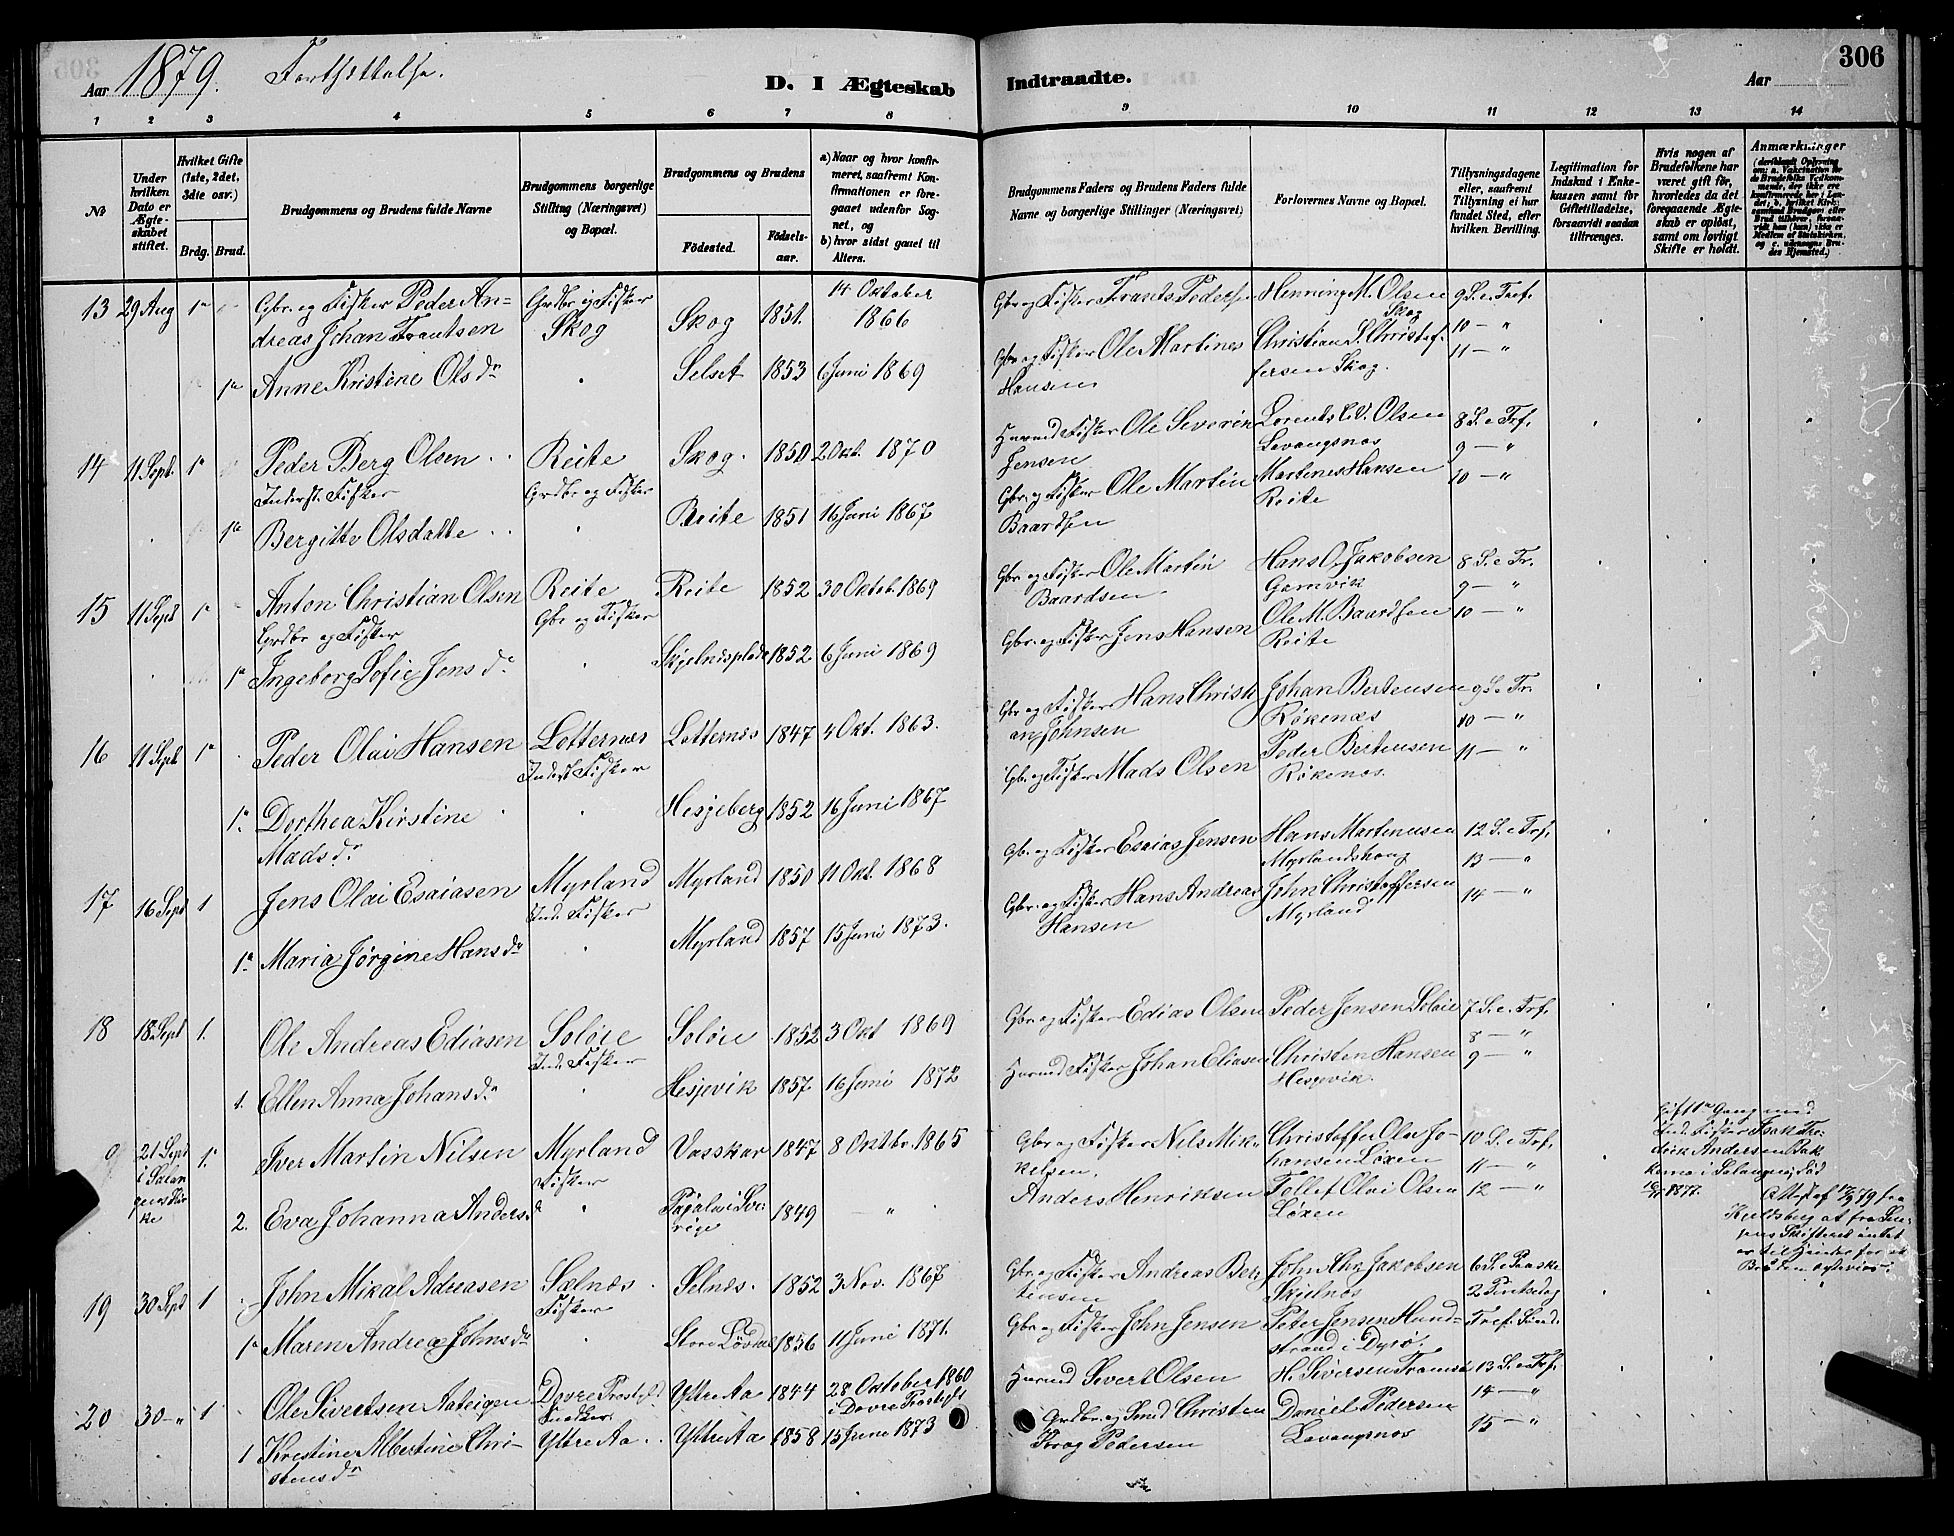 Aar 1879. Fortsættelse.
D. I Ægteskab
Indtraadte.
Aar
306
1 2 3 4 5 6 7 8 9 10 11 12 13 14
№
Under hvilken Dato er Ægteskabet stiftet.
Hvilket Gifte (1ste, 2det, 3die osv.)
Brdg. Brud.
Brudgommens og Brudens fulde Navne
Brudgommens borgerlige Stilling (Næringsvei) og Bopæl.
Brudgommens og Brudens
Fødested.
Fødselsaar.
a) Naar og hvor konfirmeret, saafremt Konfirmationen er foregaaet udenfor Sognet, og
b) hvor sidst gaaet til Alters.
Brudgommens Faders og Brudens Faders fulde Navne og borgerlige Stillinger (Næringsvei)
Forlovernes Navne og Bopæl.
Tillysningsdagene eller, saafremt Tillysning ei har fundet Sted, efter hvilken Bevilling.
Legitimation for Indskud i Enkekassen samt for Giftetilladelse, forsaavidt saadan tiltrænges.
Hvis nogen af Brudefolkene har været gift før, hvorledes da det foregaaende Ægteskab er opløst, samt om lovligt Skifte er holdt.
Anmærkninger
13 29 Aug 1e Gbr. og Fisker Peder An-
dreas Johan Frantsen
Grdbr. og Fisker
Skog Skog 1851. 14 Oktober
1866
Gbr. og Fisker Frants Peders. Henning M. Olsen
Skog
9 S. e. Tref.
10 — "
11 — "
1e Anne Kristine Olsdr Selset 1853 6 Juni 1869
Gbr. og Fisker Ole Martines
Hansen
Christian S. Christof-
fersen Skog.
14 11 Sept. 1e Peder Berg Olsen
Inderst. Fisker
Reite
Grdbr. og Fisker
Skog. 1850 2 Okt. 1870
Husmd Fisker Ole Severin
Jensen
Lorents L. V. Olsen
Levangsnes
8 S. e. Trf.
9 — "
10 — "
1e Bergitte Olsdatte Reite 1851 16 Juni 1867
Gbr. og Fisker Ole Martin
Baardsen
Martines Hansen
Reite
15 11 Sept 1e Anton Christian Olsen
Grdbr. og Fisker
Reite
Gbr. og Fisker
Reite 1852 30 Oktob. 1869
Gbr. og Fisker Ole Martin
Baardsen
Hans O. Jakobsen
Gamvik
8 S. e. Tr.
9 — "
10 — "
1e Ingeborg Sofie Jensdr 1852 6 Juni 1869
Gbr. og Fisker Jens Hansen
Ole M. Baardsen
Reite
16 11 Sept 1e Peder Olai Hansen
Lotternes
Inderst Fisker
Lotternes 1847 4 Okt. 1863.
Gbr. og Fisker Hans Christi
an Johnsen
Johan Bertensen
Røkenæs
9 S. e. Tr.
10 — "
11 — "
1e Dorthea Kirstine
Madsdr
Hesjeberg 1852 16 Juni 1867
Gbr. og Fisker Mads Olsen
Peder Bertensen
Røkenes.
17 16 Sept 1 Jens Olai Esaiasen
Myrland
Ind. Fisker
Myrland 1850 11 Okt. 1868
Gbr. og Fisker Esaias Jensen
Hans Martinusen
Myrlandshaug
12 S. e. Trf.
13 — "
14 — "
1e Maria Jørgine Hansdr Myrland 1857 15 Juni 1873.
Gbr. og Fisker Hans Andreas
Hansen
John Christoffersen
Myrland
18 18 Sept 1. Ole Andreas Ediasen
Soløie
Ind. Fisker
Soløie 1852 3 Okt 1869
Gbr. og Fisker Edias Olsen
Peder Jensen Soløie
7 S. e. Trf.
8 — "
9 — "
1. Ellen Anna Johansdr Hesjevik 1857 16 Juni 1872
Husmd Fisker Johan Eliasen
Christen Hansen
Hesjevik.
21 Sept
i Salan-
gens Kir-
ke
1. Iver Martin Nilsen
Myrland
Fisker
Vasskar 1847 8 Oktbr. 1865
Gbr. og Fisker Nils Mik-
kelsen.
Christoffer Olai Jo-
hansen Løxen
10 S. e. Trf.
11 — "
12 — "
2. Eva Johanna Andersd
Pajala i Sve-
rige 1849 — " .
Anders Henriksen
Tollef Olai Olsen
Løxen
Gift 1e Gang med
Ind. Fisker Isak
Andersen
i Salangen, død
1877.
Attest af 79 fra
at fra
Skifteret intet
er til Hinder for at
19 30 Sept 1 John Mikal Adreasen
Sælnæs
Fisker
Selnæs. 1852 3 Nov. 1867
Gbr. og Fisker Andreas Ber
tinsen
John Chr. Jakobsen
Skjelnes
6 S. e. Paaske
2 Pintsedag
Tref. Sønd.
1e Maren Andrea Johnsdr Store 1856 11 Juni 1871.
Gbr. og Fisker John Jensen
Peter Jensen Hund-
strand i Dyrø.
20 30 — " 1 Ole Sivertsen Aateigen
Dovre Prestgjld
Snedker.
Yttre Aa 1844 28 Oktober 1860
i Dovre Prestgjld
Husmd Sivert Olsen
H. Siversen Tromsø
13 S. e. Trf.
14 — "
15 — "
1 Kristine Albertine Chri-
stensdr
Yttre Aa Yttre Aa 1858 15 Juni 1873
Grdbr. og Smed Christen
Krog Pedersen
Daniel Pedersen
Levangsnes